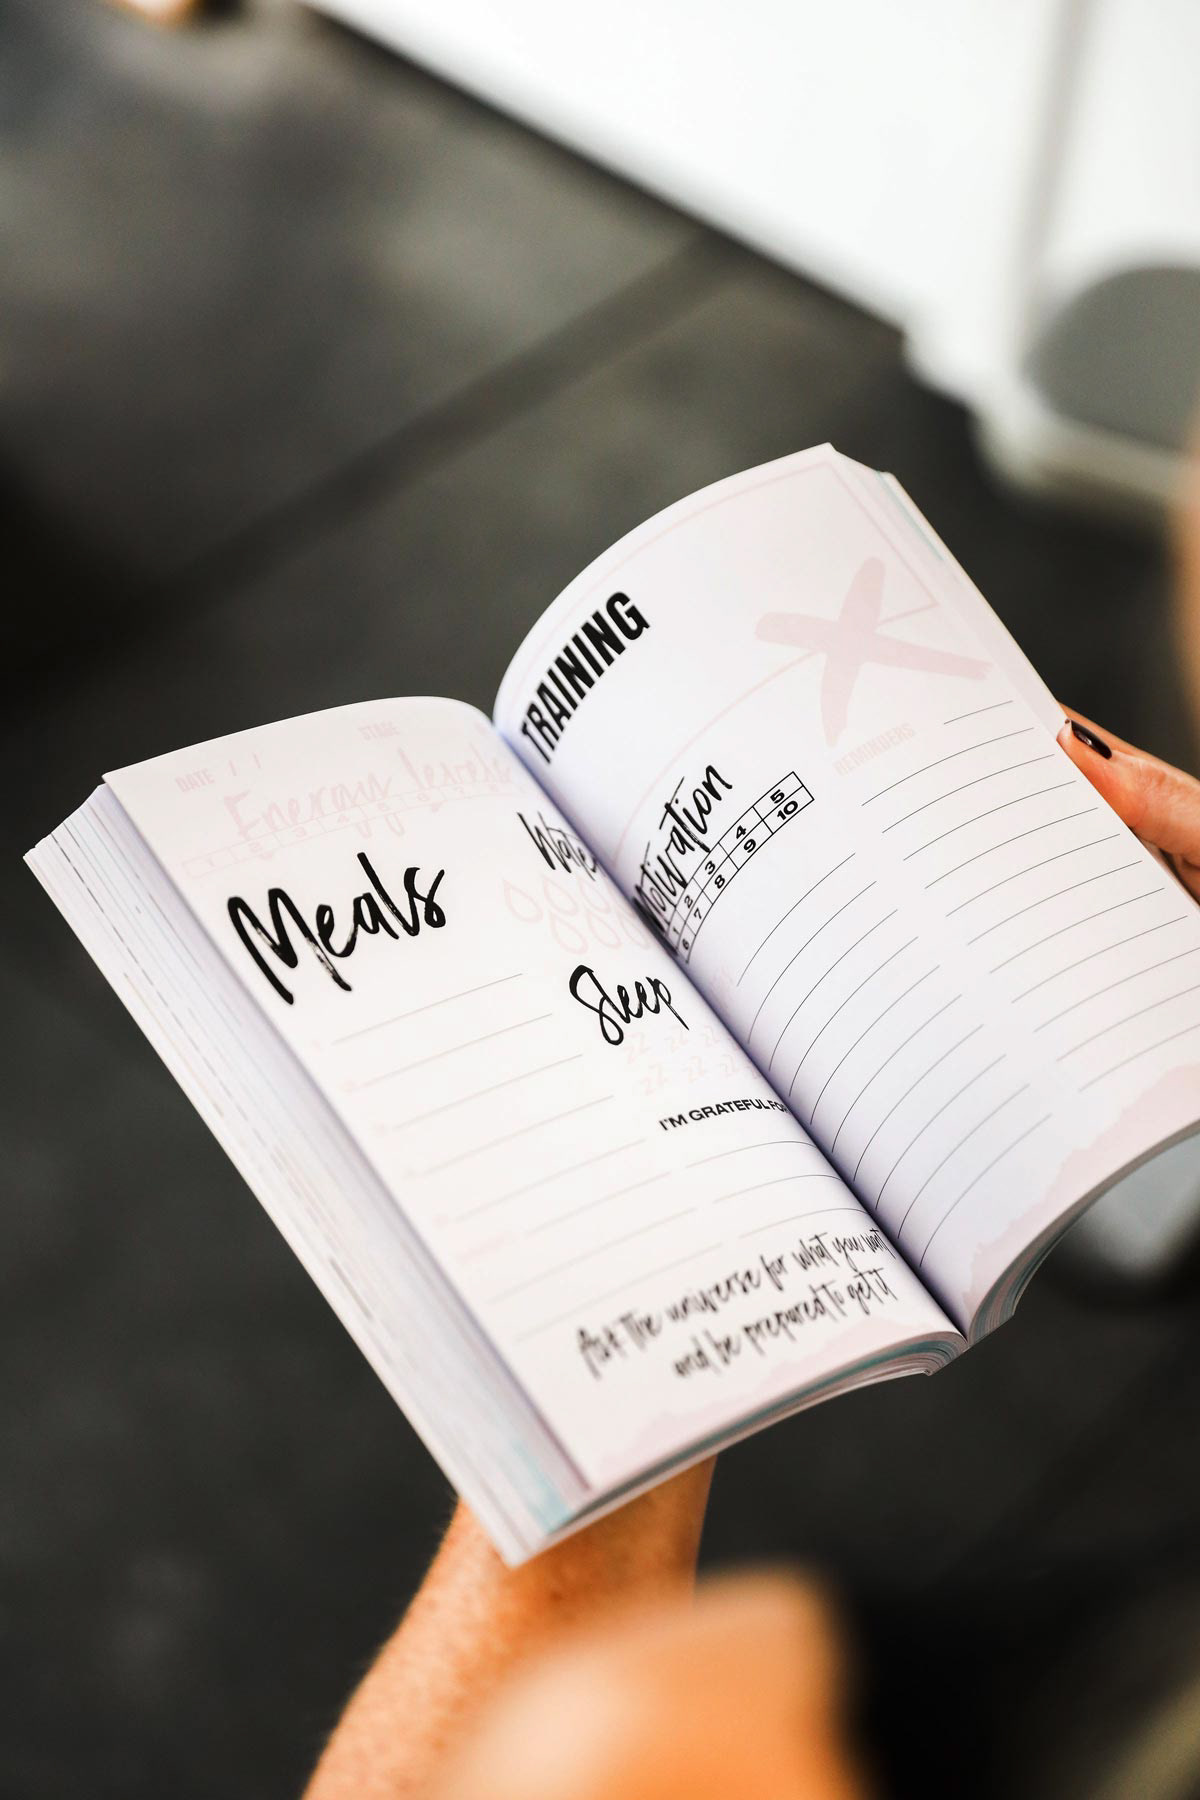 DATE / /
STAGE
Energy levels
Meals
Water
Sleep
I'M GRATEFUL FOR
Ask the universe for what you want
and be prepared to get it
TRAINING
Motivation
1 2 3 4 5
6 7 8 9 10
REMINDERS